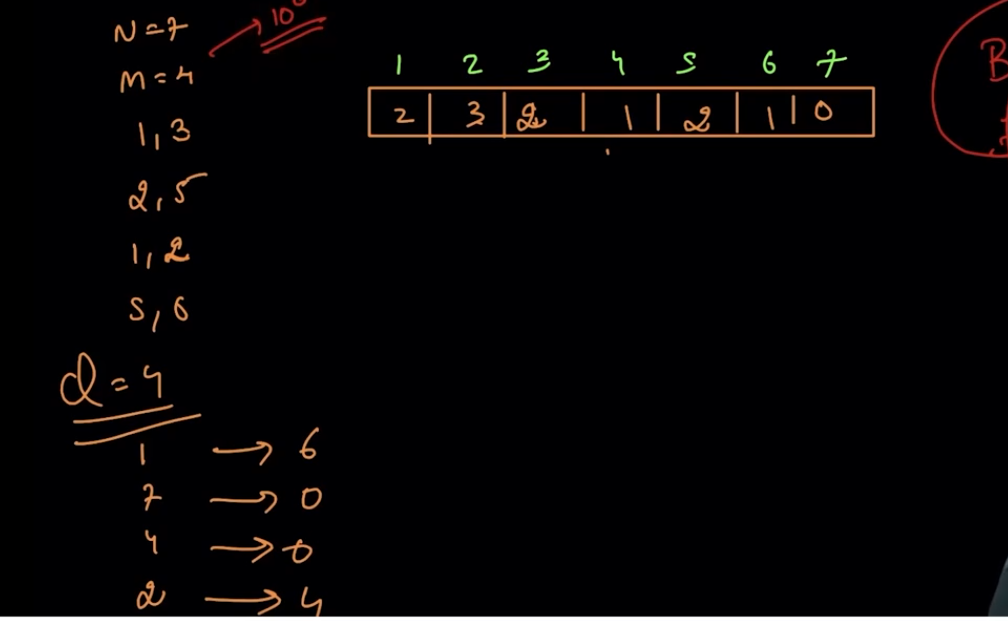 N=7
M=4
1,3
2,5
1,2
5,6
Q=4
1 → 6
7 → 0
4 → 0
2 → 4
1 2 3 4 5 6 7
2 | 3 | 2 | 1 | 2 | 1 | 0
B